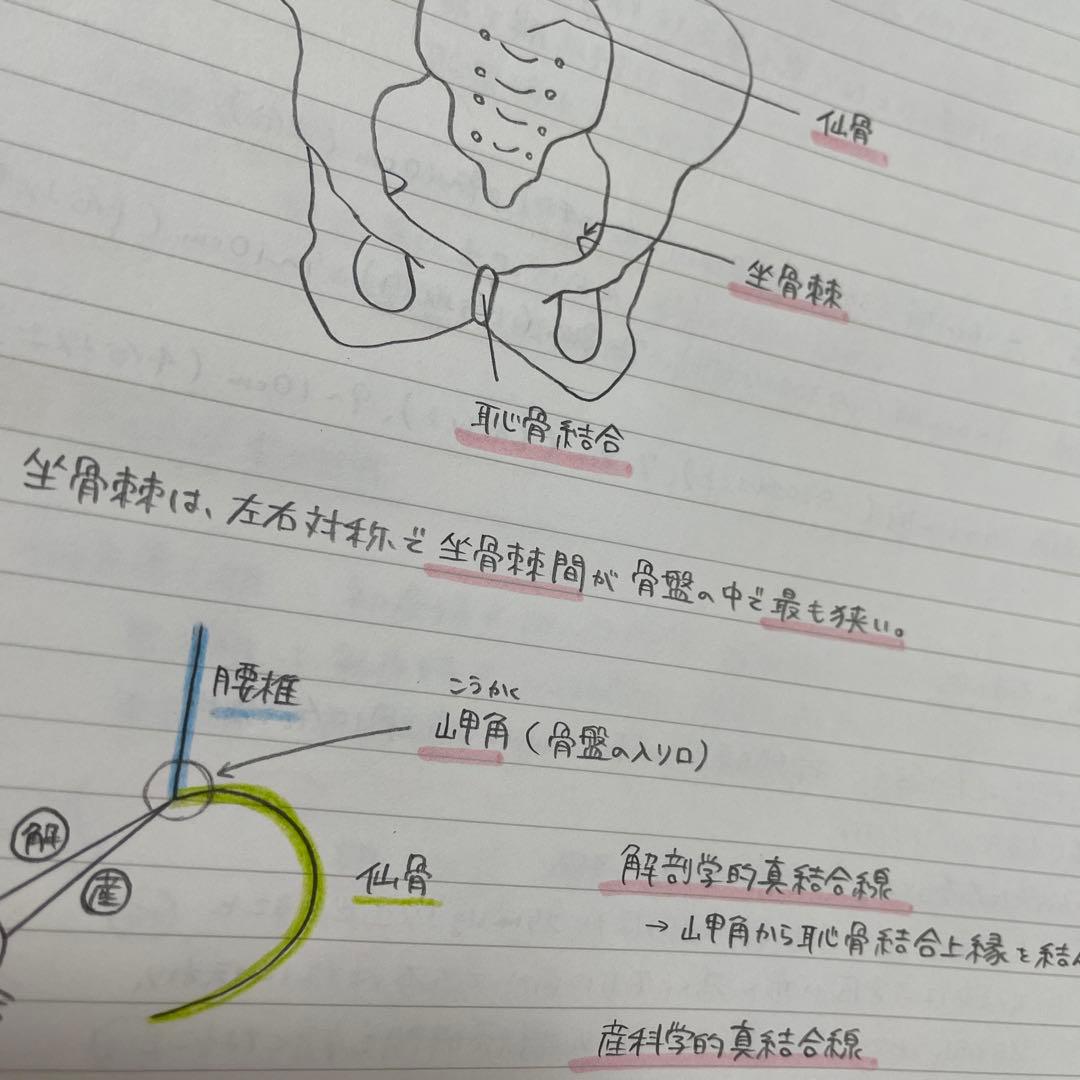 仙骨
坐骨棘
恥骨結合
坐骨棘は、左右対称で坐骨棘間が骨盤の中で最も狭い。
腰椎
こうかく
岬角(骨盤の入り口)
解
産
仙骨
解剖学的真結合線
→岬角から恥骨結合上縁を結
産科学的真結合線